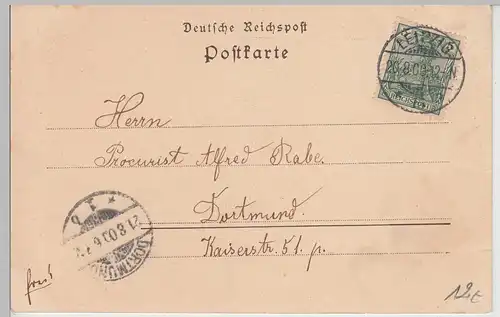 Deutsche Reichspost
Postkarte
LEIPZIG
Herrn
Procurist Alfred Rabe.
Dortmund.
Kaiserstr. 51. p.
DORTMUND
frei
12€